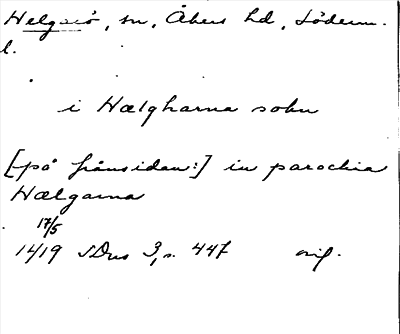 Helgesö, sn, Åkers hd, Söderm.
l.
i Hælgharna sokn
[på frånsidan:] in parochia
Hælgarna
17/5
1419 SDns 3, s. 447 orig.